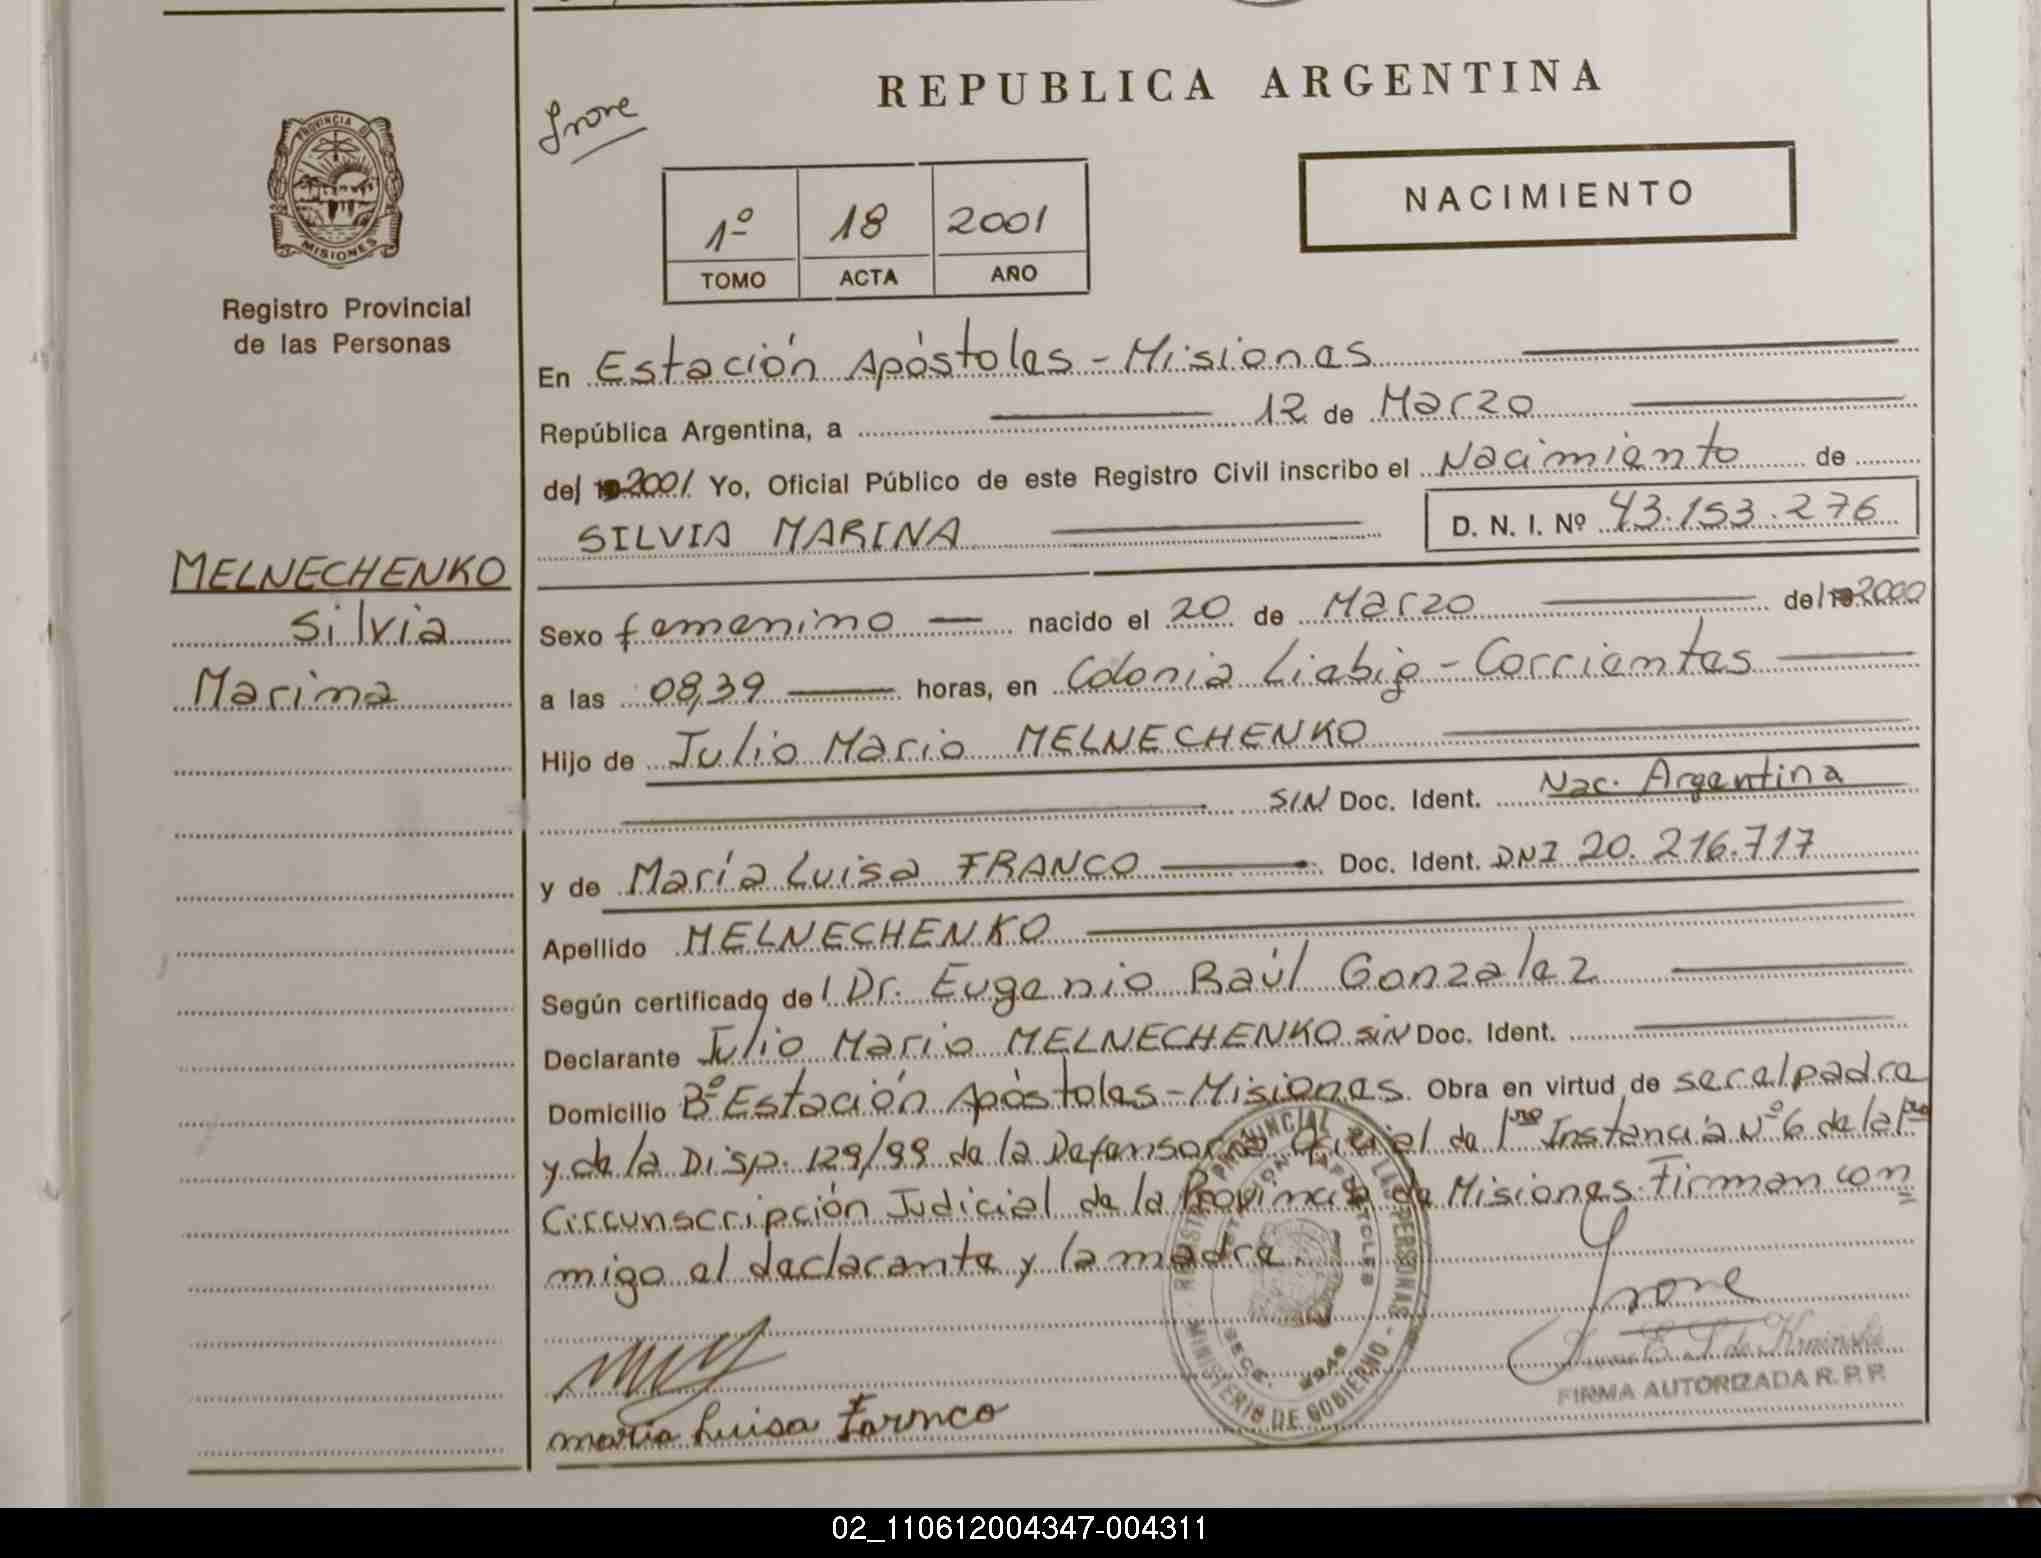 REPUBLICA ARGENTINA
Irone
PROVINCIA DE MISIONES
1º 18 2001
TOMO ACTA AÑO
NACIMIENTO
Registro Provincial
de las Personas
En Estación Apóstoles - Misiones
República Argentina, a 12 de Marzo
del 2001 Yo, Oficial Público de este Registro Civil inscribo el Nacimiento de
SILVIA MARINA D. N. I. Nº 43.153.276
MELNECHENKO
Silvia
Marina
Sexo femenino nacido el 20 de Marzo del 2000
a las 08,39 horas, en Colonia Liebig - Corrientes
Hijo de Julio Mario MELNECHENKO
SIN Doc. Ident. Nac. Argentina
y de María Luisa FRANCO Doc. Ident. DNI 20.216.717
Apellido MELNECHENKO
Según certificado del Dr. Eugenio Raúl Gonzalez
Declarante Julio Mario MELNECHENKO SIN Doc. Ident.
Domicilio Bº Estación Apóstoles - Misiones. Obra en virtud de ser el padre
y de la Disp. 129/99 de la Defensoría Oficial de 1ra Instancia Nº 6 de la 1ra
Circunscripción Judicial de la Provincia de Misiones. Firman con
migo el declarante y la madre.
REGISTRO PROVINCIAL DE LAS PERSONAS
MINISTERIO DE GOBIERNO
ESTACION APOSTOLES
SECC.
Irone
FIRMA AUTORIZADA R. P. P.
maria Luisa Farnco
02_110612004347-004311